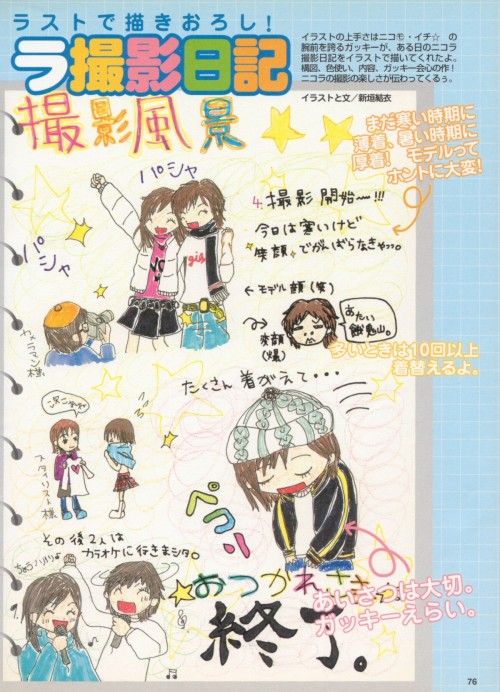 ラストで描きおろし!
ラ撮影日記
イラストの上手さはニコモ・イチ☆ の
腕前を誇るガッキーが、ある日のニコラ
撮影日記をイラストで描いてくれたよ。
構図、色使い、内容、ガッキー会心の作!
ニコラの撮影の楽しさが伝わってくるぅ。
イラストと文/新垣結衣
撮影風景
まだ寒い時期に
薄着、暑い時期に
厚着! モデルって
ホントに大変!
パシャ
パシャ
4. 撮影開始〜!!!
今日は寒いけど
笑顔でがんばらなきゃっ。
← モデル顔(笑)
カメラマン様
変顔
(爆)
あたい
餓鬼山。
多いときは10回以上
着替えるよ。
たくさん着がえて・・・
スタイリスト様
ペコリ
その後2人は
カラオケに行きまシタ。
おつかれさまっ
終了。
あいさつは大切。
ガッキーえらい。
76